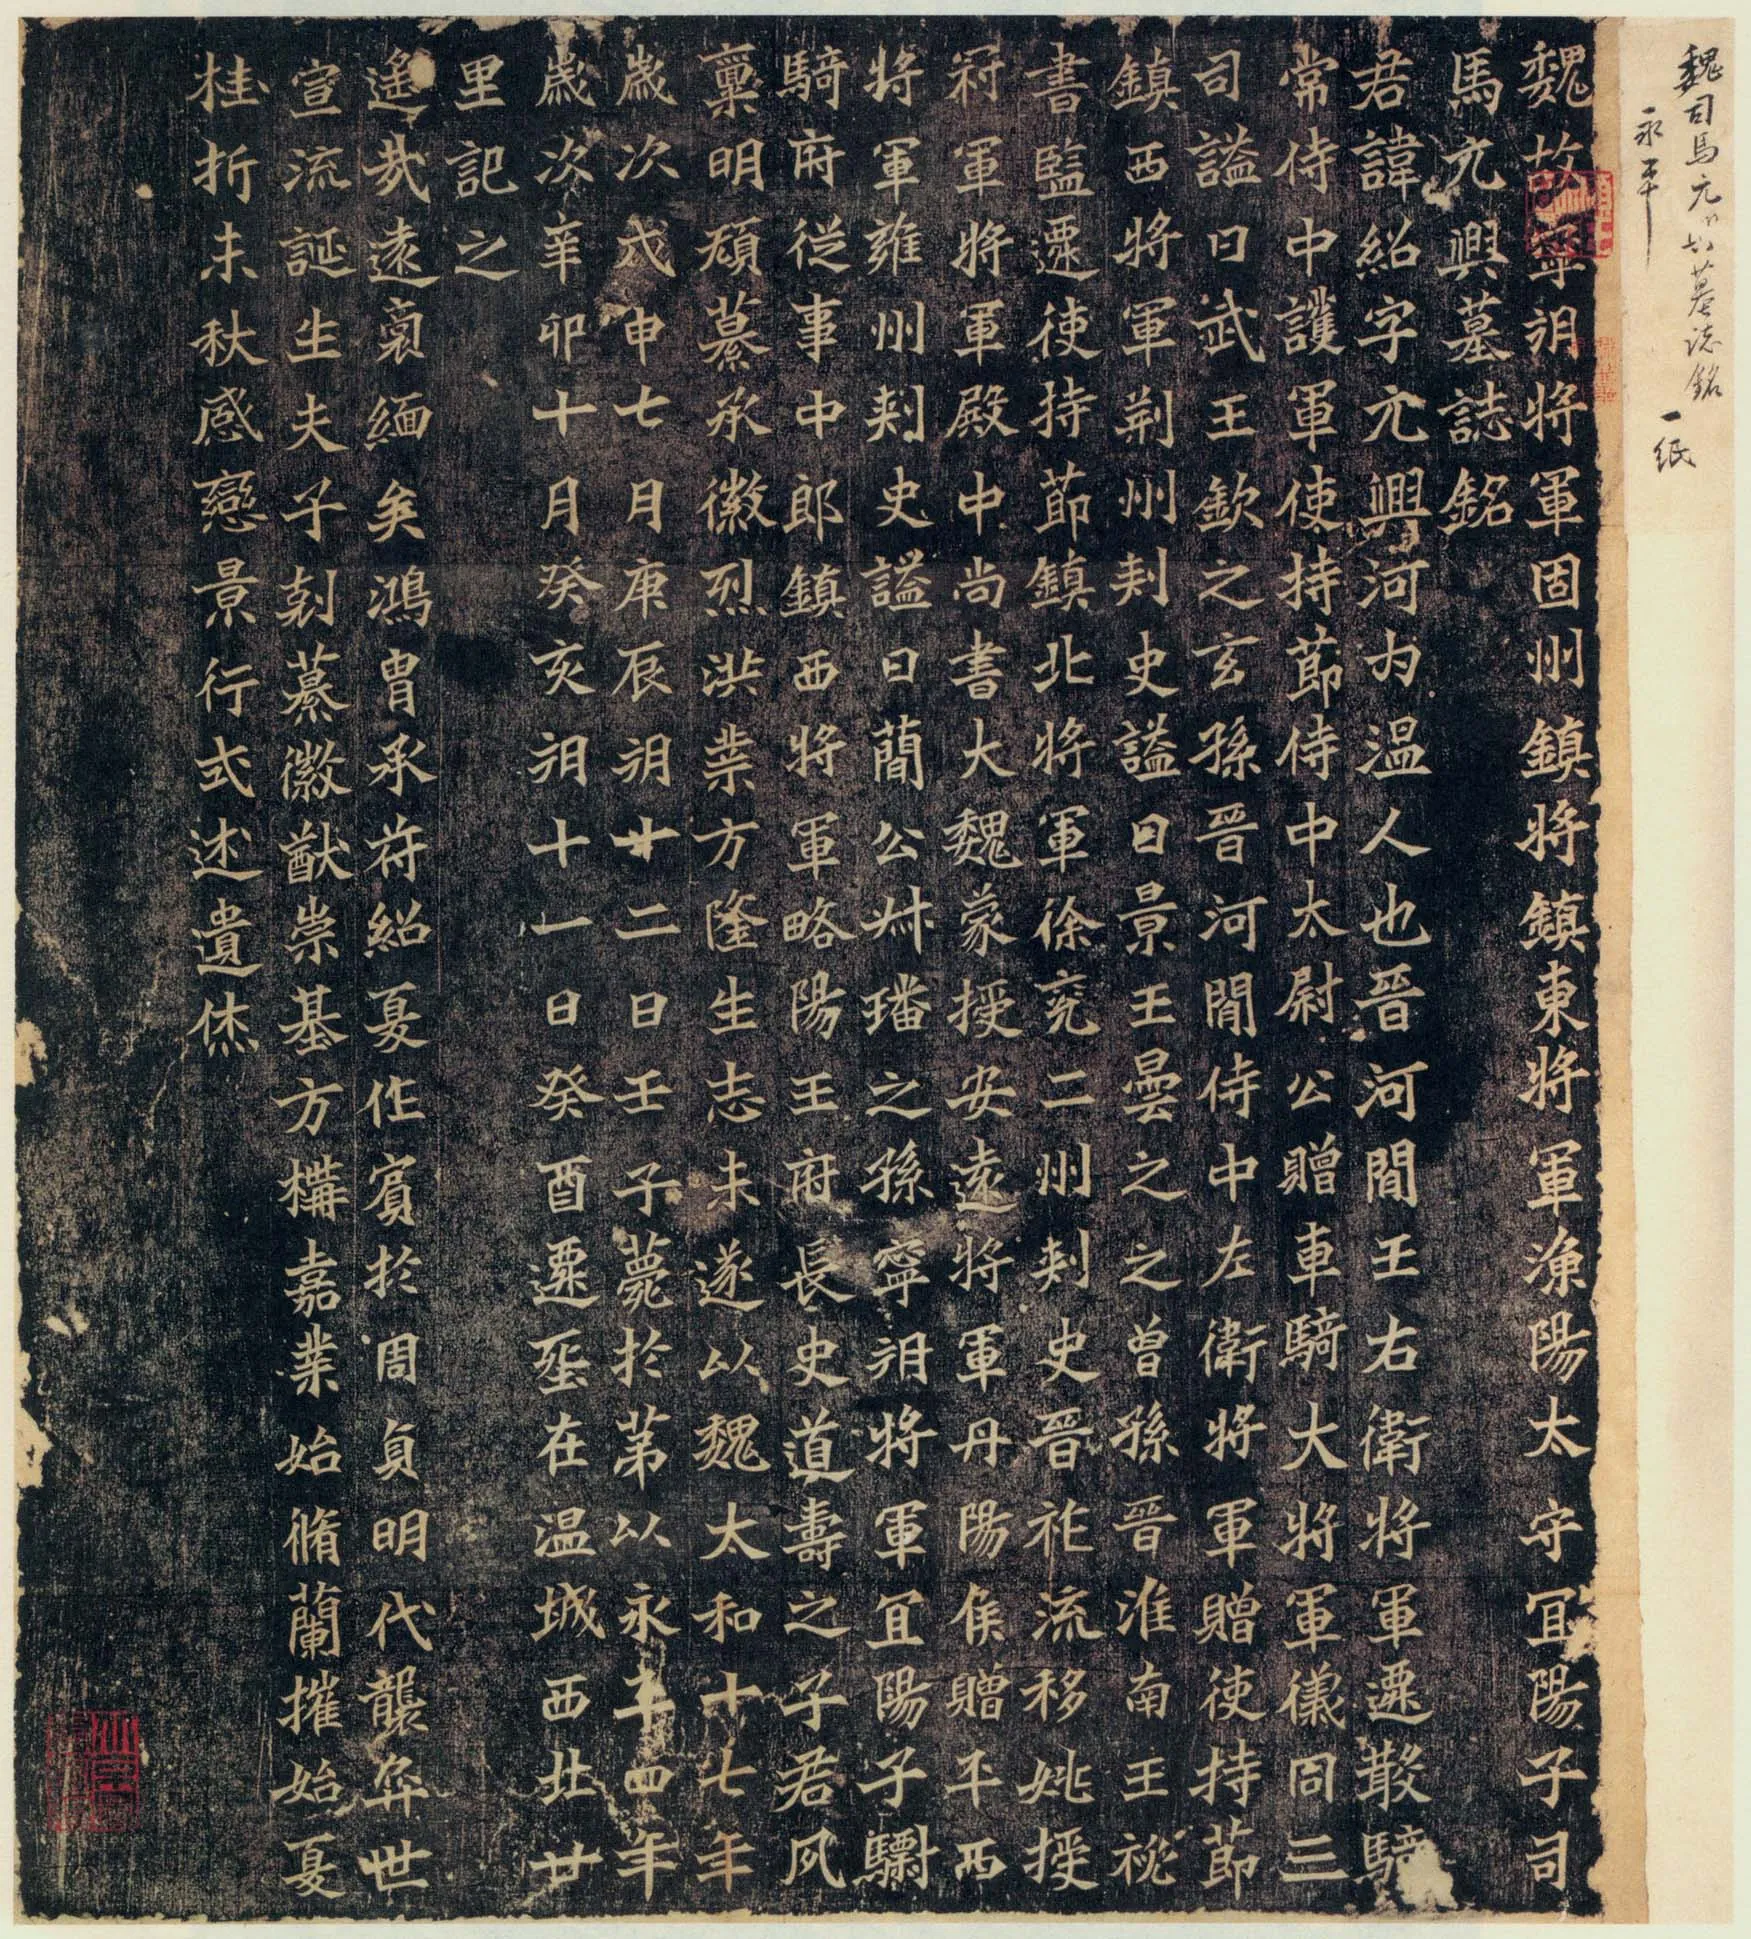 魏司馬元興墓誌銘
永平
一紙
魏故寧朔將軍固州鎮將鎮東將軍漁陽太守宜陽子司
馬元興墓誌銘
君諱紹字元興河内温人也晉河間王右衛將軍遷散騎
常侍中護軍使持節侍中太尉公贈車騎大將軍儀同三
司謚曰武王欽之玄孫晉河間侍中左衛將軍贈使持節
鎮西將軍荊州刺史謚曰景王曇之之曾孫晉淮南王祕
書監遷使持節鎮北將軍徐兖二州刺史晉祚流移姚授
冠軍將軍殿中尚書大魏蒙授安遠將軍丹陽侯贈平西
將軍雍州刺史謚曰蕳公叔璠之孫寧朔將軍宜陽子驃
騎府從事中郎鎮西將軍略陽王府長史道壽之子君夙
稟明頑纂承徽烈洪業方隆生志未遂以魏太和十七年
歲次戊申七月庚辰朔廿二日壬子薨於第以永平四年
歲次辛卯十月癸亥朔十一日癸酉遷塟在温城西北廿
里記之
遙哉遠裔緬矣鴻胄承符紹夏作賓於周貞明代襲弈世
宣流誕生夫子剋纂徽猷崇基方構嘉業始脩蘭摧始夏
桂折未秋感戀景行式述遺烋